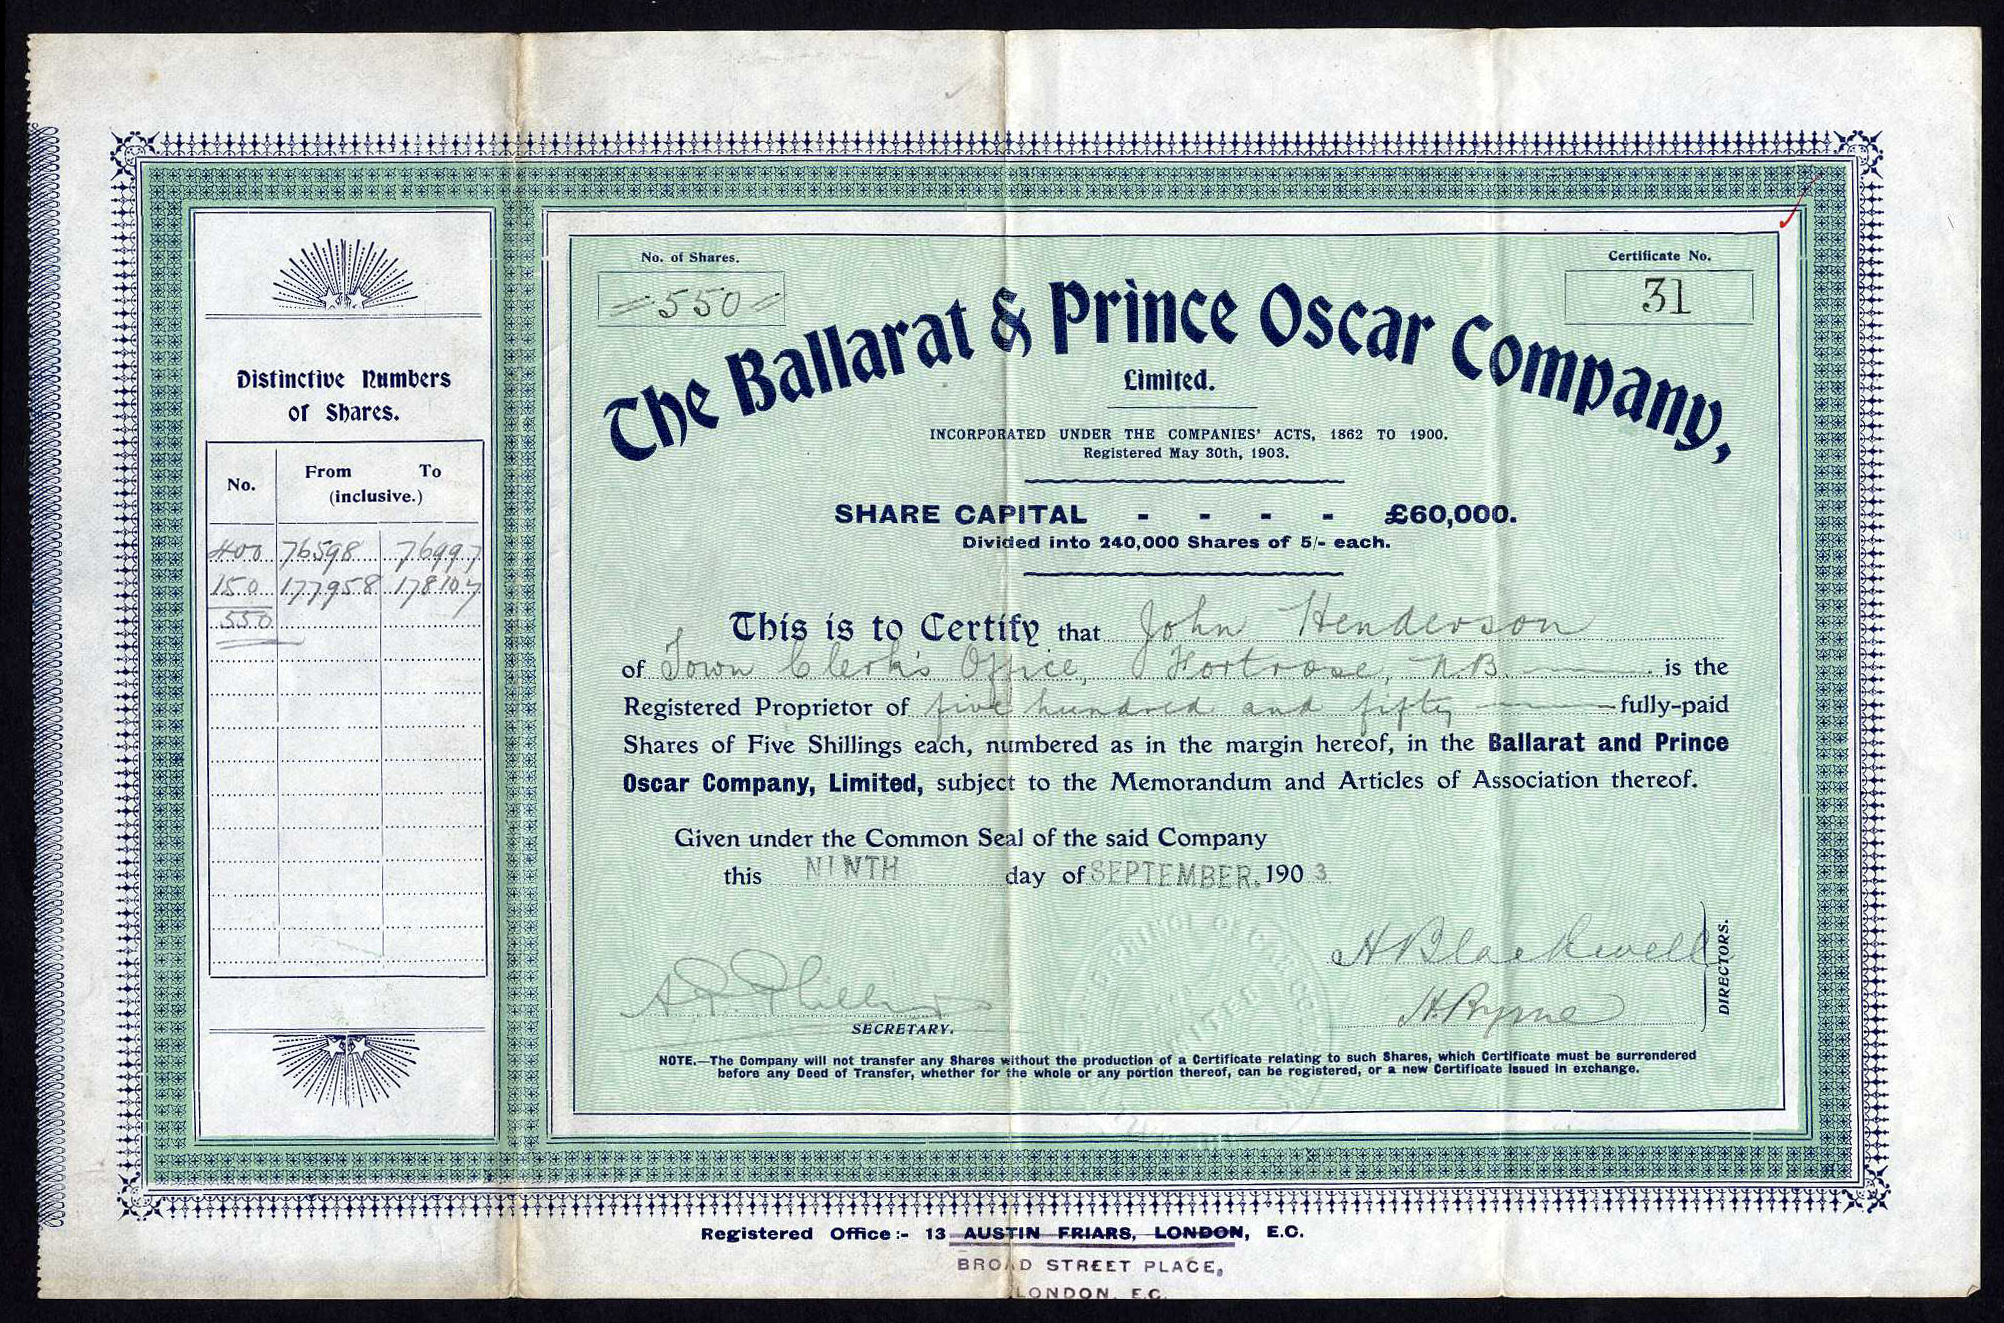 No. of Shares.
=550=
Certificate No.
31
The Ballarat & Prince Oscar Company,
Limited.
INCORPORATED UNDER THE COMPANIES' ACTS, 1862 TO 1900.
Registered May 30th, 1903.
SHARE CAPITAL - - - - £60,000.
Divided into 240,000 Shares of 5/- each.
This is to Certify that John Henderson
of Town Clerk's Office, Fortrose, N.B. is the
Registered Proprietor of five hundred and fifty fully-paid
Shares of Five Shillings each, numbered as in the margin hereof, in the Ballarat and Prince
Oscar Company, Limited, subject to the Memorandum and Articles of Association thereof.
Given under the Common Seal of the said Company
this NINTH day of SEPTEMBER. 1903
H Blackwell
H. Byrne
DIRECTORS.
SECRETARY.
NOTE.—The Company will not transfer any Shares without the production of a Certificate relating to such Shares, which Certificate must be surrendered
before any Deed of Transfer, whether for the whole or any portion thereof, can be registered, or a new Certificate issued in exchange.
Distinctive Numbers
of Shares.
No. From To
(inclusive.)
400 76598 76997
150 177958 178107
550
Registered Office:- 13 AUSTIN FRIARS, LONDON, E.C.
BROAD STREET PLACE,
LONDON, E.C.